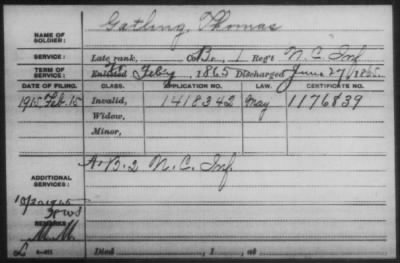 Gatling, Thomas
NAME OF SOLDIER:
SERVICE: Late rank, Co. B., 1 Reg't N.C. Inf
TERM OF SERVICE: Enlisted Feb'y 1865 Discharged June 27, 1865.
DATE OF FILING. CLASS. APPLICATION NO. LAW. CERTIFICATE NO.
1915, Feb. 15 Invalid, 1418342 May 1176839
Widow,
Minor,
A+B. 2 N.C. Inf.
ADDITIONAL SERVICES:
REMARKS:
M.M.
Died , 1 , at